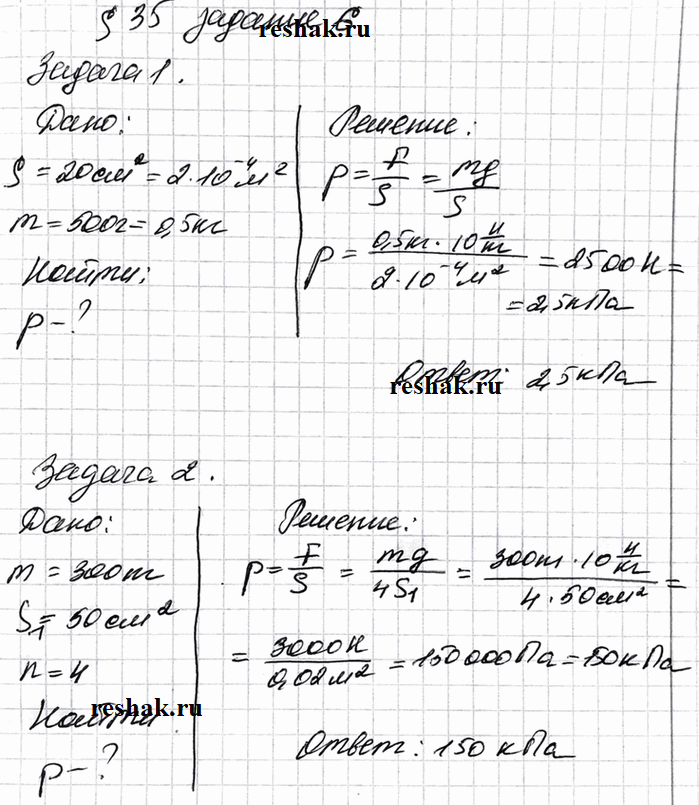 § 35 задание 6
reshak.ru
Задача 1.
Дано:
S = 20 см² = 2·10⁻⁴ м²
m = 500г = 0,5кг
Найти:
p - ?
Решение:
p = F/S = mg/S
p = 0,5кг · 10 Н/кг / 2·10⁻⁴ м² = 2500 Н =
= 2,5 кПа
Ответ: 2,5 кПа
reshak.ru
Задача 2.
Дано:
m = 300 т
S₁ = 50 см²
n = 4
Найти
reshak.ru
p - ?
Решение:
p = F/S = mg/4S₁ = 300т · 10 Н/кг / 4 · 50см² =
= 3000Н / 0,02 м² = 150 000 Па = 150 кПа
Ответ: 150 кПа